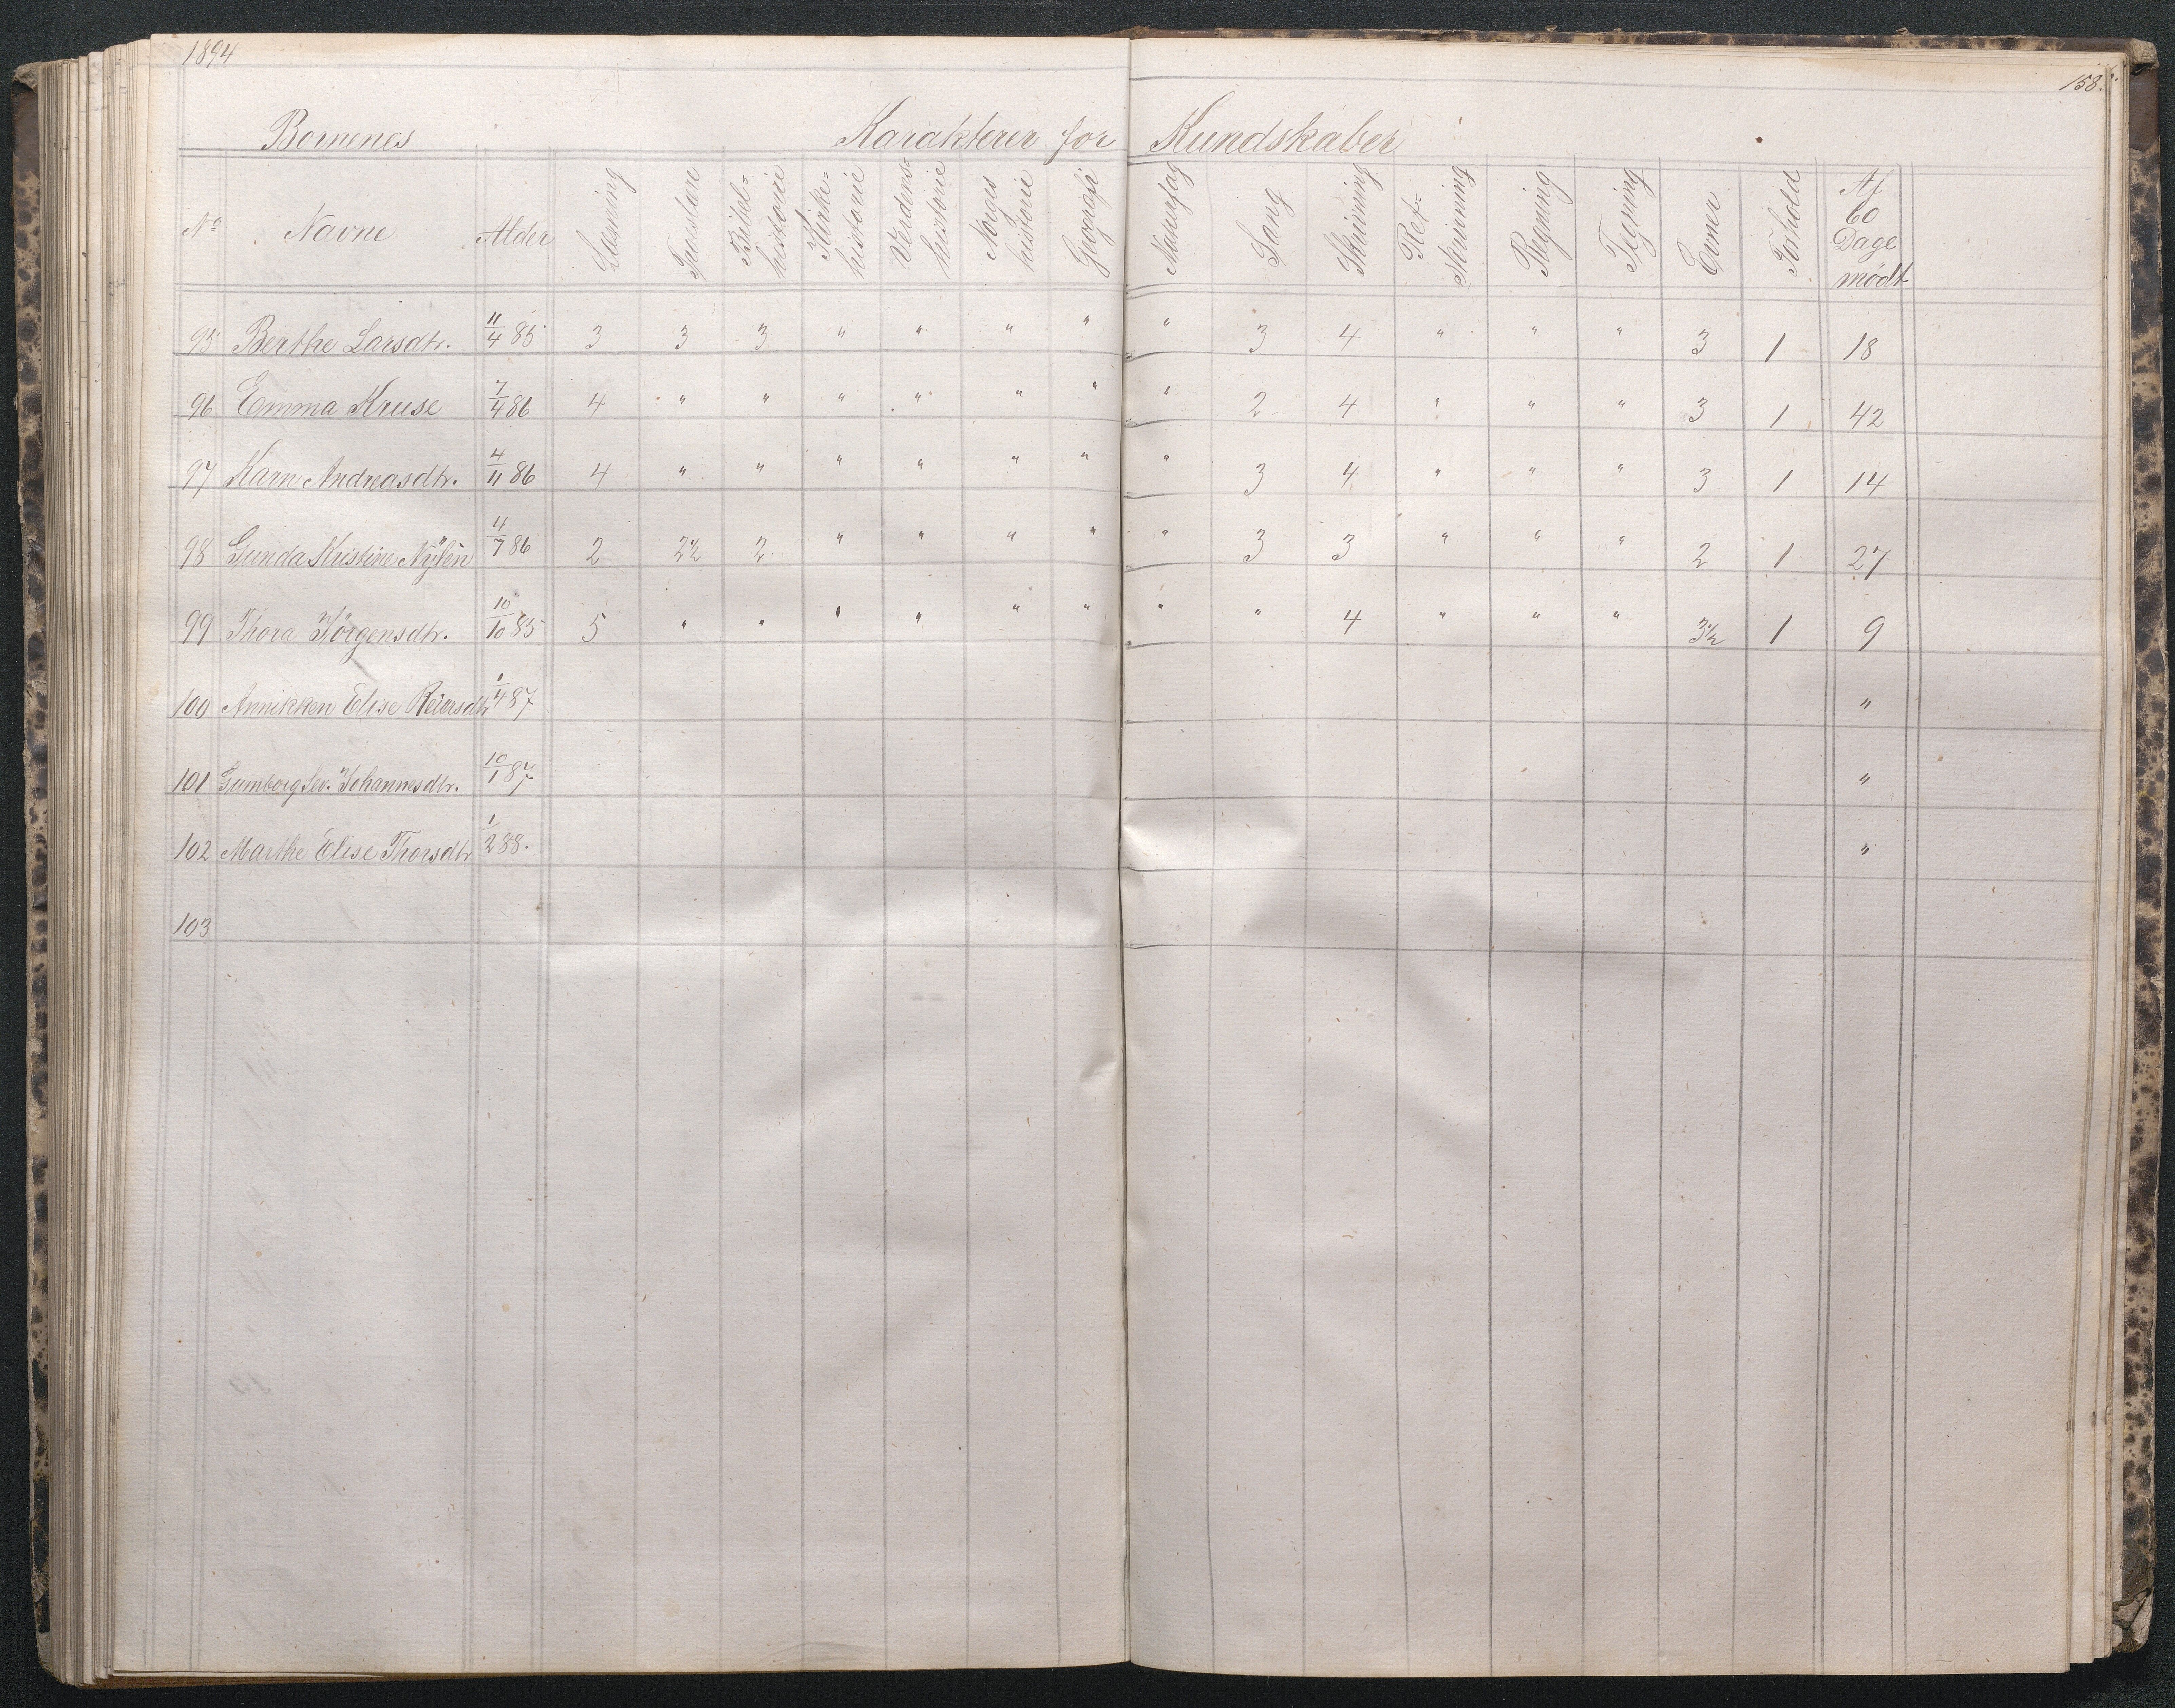 1894
158.
Børnenes Karakterer for Kundskaber
No Navne Alder Læsning Troeslære Bibel-historie Kirke-historie Verdens-historie Norges historie Geografi Naturfag Sang Skrivning Ret-Skrivning Regning Tegning Evner Forhold Af 60 Dage mødt
95 Berthe Larsdtr. 11/4 85 3 3 3 " " " " " 3 4 " " " 3 1 18
96 Emma Kruse 7/4 86 4 " " " " " " " 2 4 " " " 3 1 42
97 Karn Andreasdtr. 4/11 86 4 " " " " " " " 3 4 " " " 3 1 14
98 Gunda Kristine Nylén 4/7 86 2 2½ 2 " " " " " 3 3 " " " 2 1 27
99 Thora Jörgensdtr. 10/10 85 5 " " " " " " " " 4 " " " 3½ 1 9
100 Annikken Elise Reiersdtr 1/4 87 "
101 Gumborg Johannesdtr. 10/1 87 "
102 Marthe Elise Thorsdtr 1/2 88. "
103